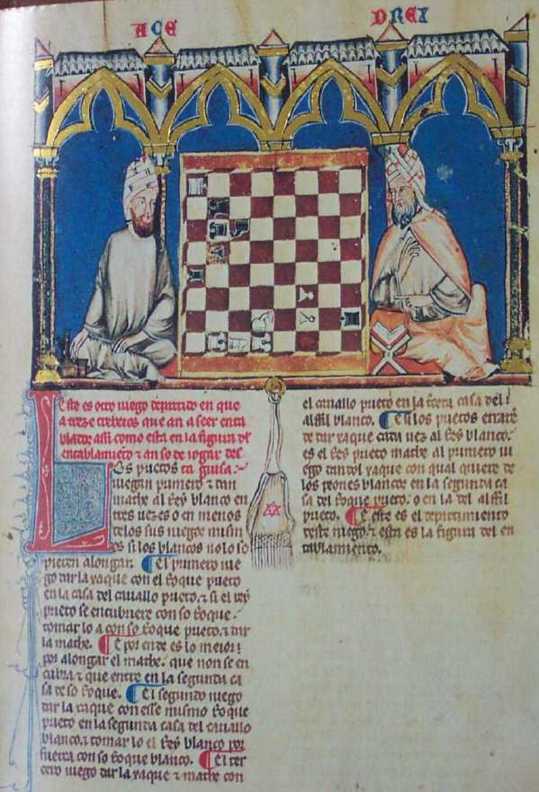 ACE DREX
Este es otro iuego departido en que
a treze trebeios que an a seer enta
blados assi como esta en la figura del
entablamiento ⁊ an se de iogar desta guisa.
Los prietos
iuegan primero ⁊ dan
mathe al Rey blanco en
tres uezes o en menos
delos sus iuegos mismos
si los blancos no lo so
pieren alongar. El primero iue
go dar la xaque con el Roque prieto
en la casa del cauallo prieto. ⁊ si el Rey
prieto se encubriere con so Roque.
tomar lo a con so Roque prieto. ⁊ dar
la mathe. E por ende es lo meior
por alongar el mathe. que non se en
cubra ⁊ que entre en la segunda ca
sa de so Roque. El segundo iuego
dar la xaque con esse mismo Roque
prieto en la segunda casa del cauallo
blanco. ⁊ tomar lo a el Rey blanco por
fuerça con so Roque blanco. El ter
cero iuego dar la xaque ⁊ mathe con
el cauallo prieto en la tercera casa del
alffil blanco. E si los prietos erraren
de dar xaque cada uez al Rey blanco.
es el Rey prieto mathe al primero iu
ego dandol xaque con qual quiere de
los peones blancos en la segunda ca
sa del Roque prieto. o en la del alffil
prieto. E este es el departimiento
deste iuego. ⁊ esta es la figura del en
tablamiento.